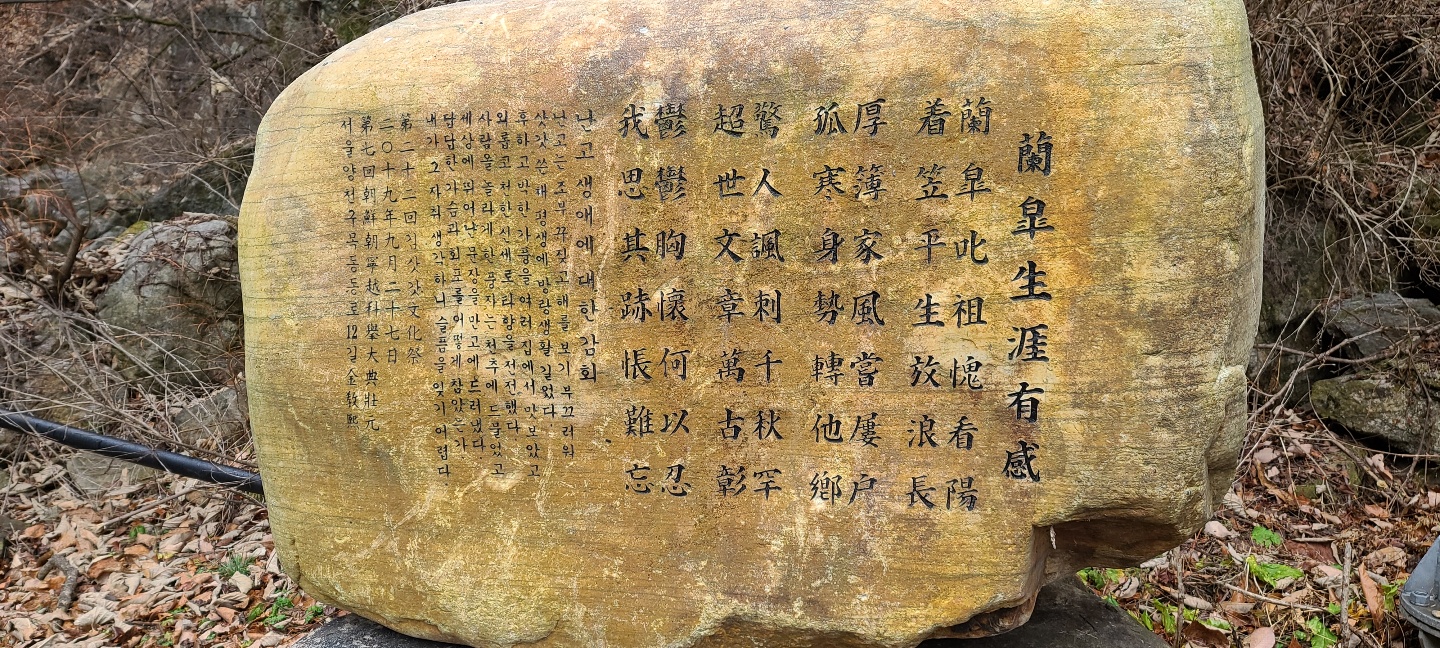 蘭皐生涯有感
蘭皐叱祖愧看陽
着笠平生放浪長
厚簿家風嘗屢户
孤寒身勢轉他鄉
驚人諷刺千秋罕
超世文章萬古彰
鬱鬱胸懷何以忍
我思其跡悵難忘
난고 생애에 대한 감회
난고는 조부 꾸짖고 해를 보기 부끄러워
삿갓 쓴 채 평생에 방랑생활 길었다.
후하고 박한 가풍을 여러 집에서 맛보았고
외롭고 처한 신세로 타향을 전전했다.
사람을 놀라게 한 풍자는 천추에 드물었고
세상에 뛰어난 문장을 만고에 드러냈다
답답한 가슴과 회포를 어떻게 참았는가
내가 그 자취 생각하니 슬픔을 잊기 어렵다
第二十二回김삿갓文化祭
二〇十九年九月二十七日
第七回朝鮮朝寧越科擧大典壯元
서울양천구목동동로12길 全敎熙